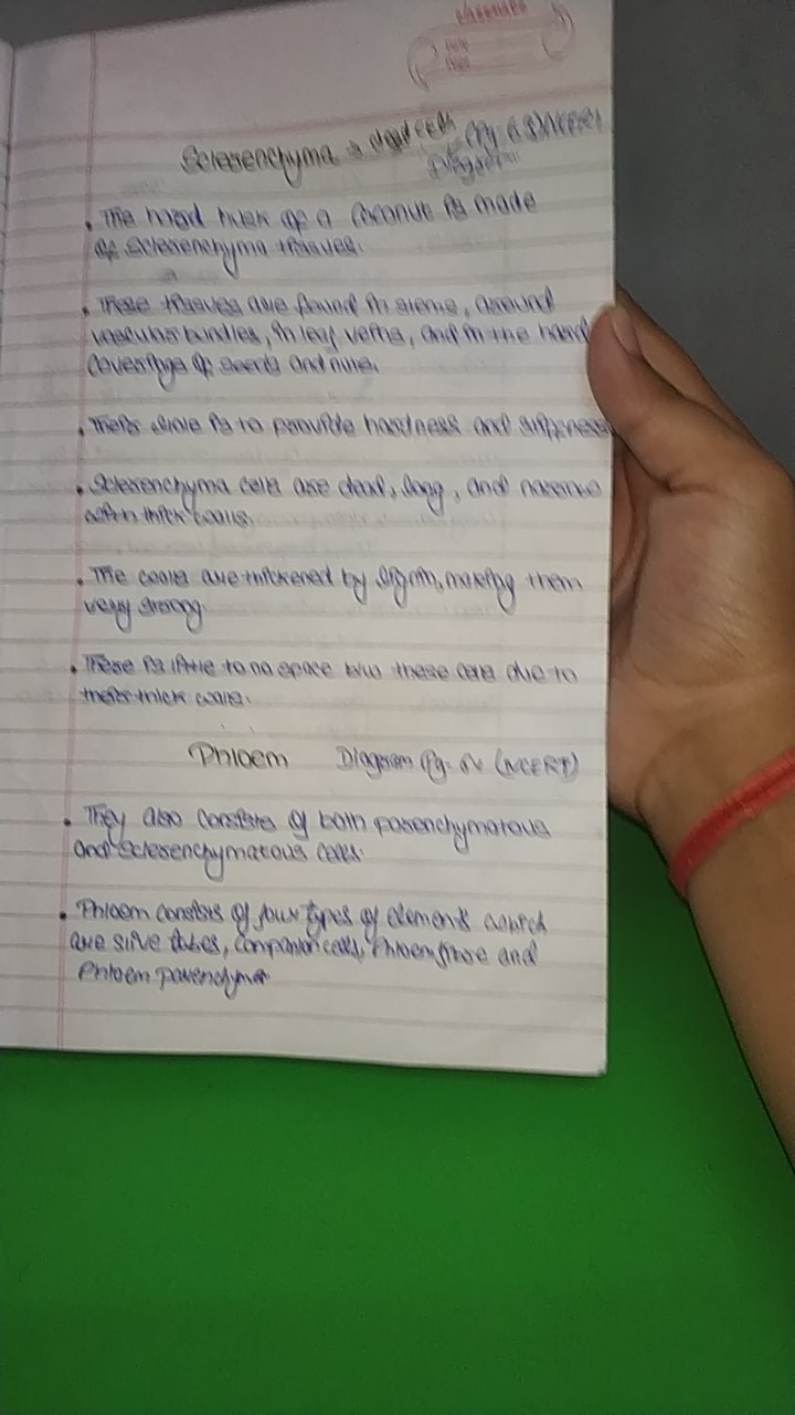 Classmate
Date
Page
Sclerenchyma → dead cells (Pg 68) NCERT
Diagram
• The hard husk of a Coconut is made
of sclerenchyma tissues.
• These tissues are found in stems, around
vascular bundles, in leaf veins, and in the hard
Coverings of seeds and nuts.
• Their role is to provide hardness and stiffness
• Sclerenchyma cells are dead, long, and narrow
with thick walls.
• The walls are thickened by lignin, making them
very strong
• There is little to no space b/w these cells due to
their thick walls.
Phloem Diagram Pg- (NCERT)
• They also consists of both parenchymatous
and sclerenchymatous cells.
• Phloem consists of four types of elements which
are sive tubes, Companion cells, Phloem fibre and
Phloem parenchyma